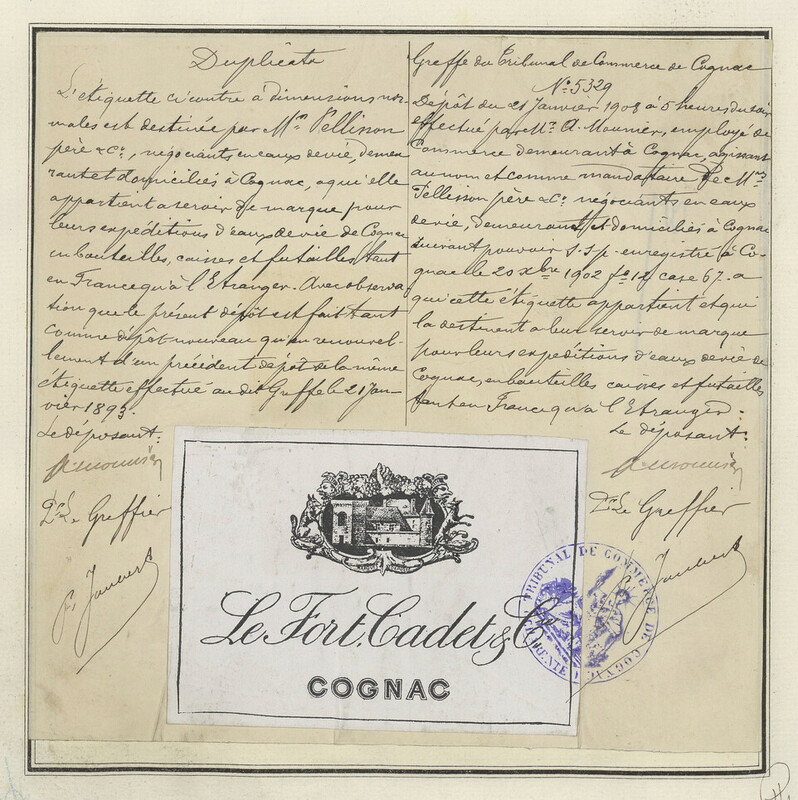 Duplicata
L'étiquette ci contre à dimensions nor-
males est destinée par Mrs Pellisson
père & Co, négociants en eaux de vie, demeu
rant et domiciliés à Cognac, a qui elle
appartient a servir de marque pour
leurs expéditions d'eaux de vie de Cognac
en bouteilles, caisses et futailles tant
en France qu'à l'Etranger. Avec observa
tion que le présent dépôt est fait tant
comme dépôt nouveau qu'en renouvel-
lement d'un précédent dépôt de la même
étiquette effectué au dit Greffe le 21 Jan
vier 1893.
Le déposant:
A. Mounier
Pr Le Greffier
Greffe du Tribunal de Commerce de Cognac
No 5329
Dépôt du 21 Janvier 1908 à 5 heures du soir
effectué par Mr A. Mounier, employé de
Commerce demeurant à Cognac, agissant
au nom et comme mandataire de Mrs
Pellisson père & Co négociants en eaux
de vie, demeurant et domiciliés à Cognac
suivant pouvoir s.s.p. enregistré à Co-
gnac le 20 Xbre 1902 fo 12 case 67. a
qui cette étiquette appartient et qui
la destinent a leur servir de marque
pour leurs expéditions d'eaux de vie de
Cognac, en bouteilles caisses et futailles
tant en France qu'à l'Etranger.
Le déposant:
A. Mounier
Pr Le Greffier
Le Fort, Cadet & Cie
COGNAC
TRIBUNAL DE COMMERCE DE COGNAC